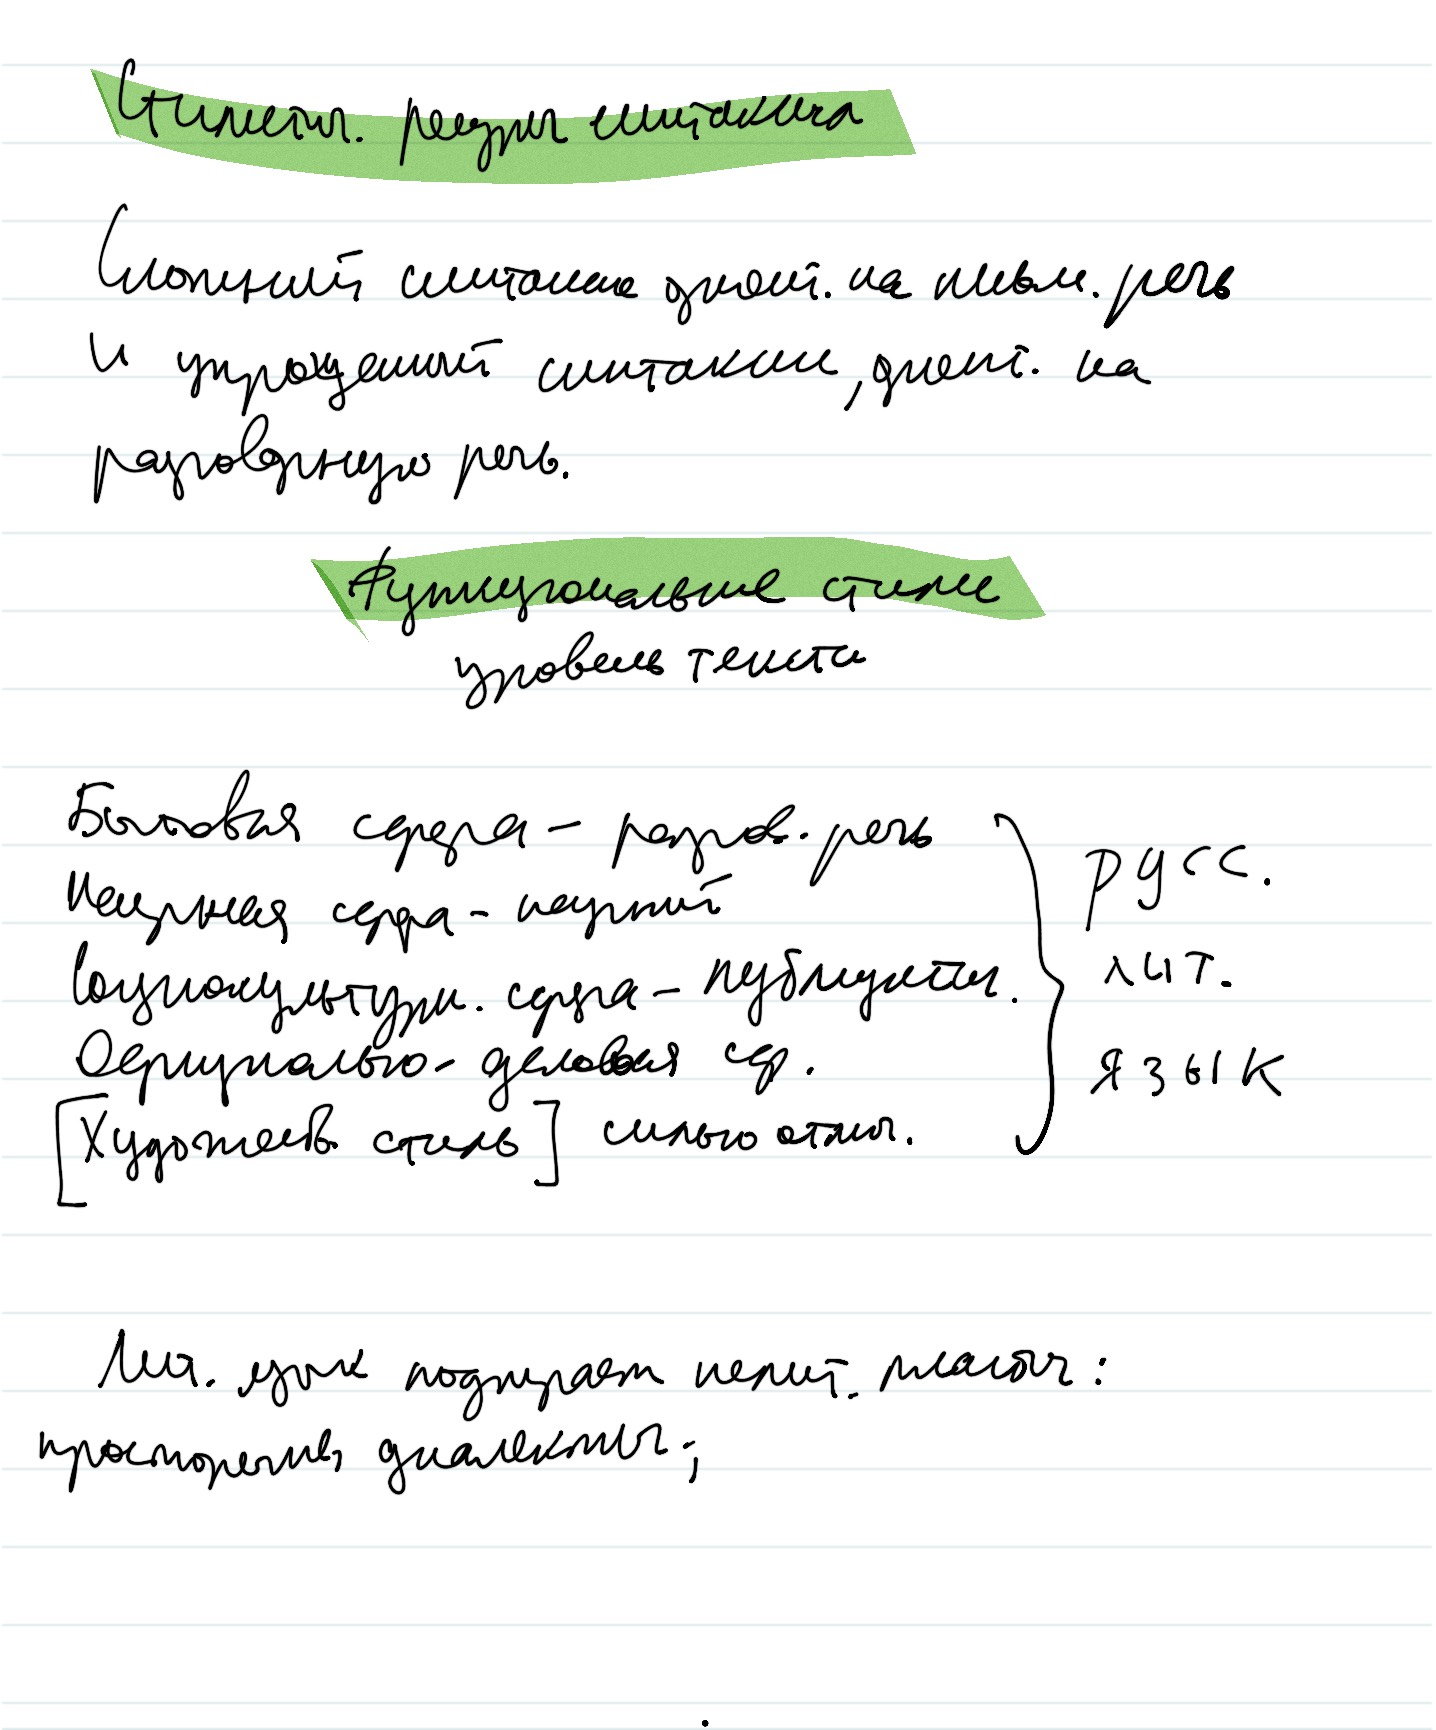 Стилистич. ресурсы синтаксиса
Сложный синтаксис
на письм. речь
и упрощенный синтаксис, на
разговорную речь.
Функциональные стили
уровень текста
Бытовая сфера – разгов. речь
Научная сфера – научный
Социокультурн. сфера – публицистич.
Официально-деловая сф.
[Художеств. стиль] сильно отлич.
русс.
лит.
язык
Лит. язык подпирает нелит. пласты:
просторечие, диалекты;